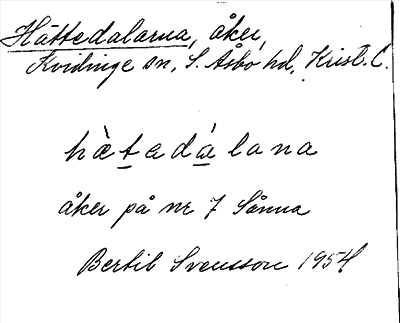 Hättedalarna, åker,
Kvidinge sn, S. Åsbo hd, Krist. C.
hàtadálana
åker på nr 7 Sånna
Bertil Svensson 1954